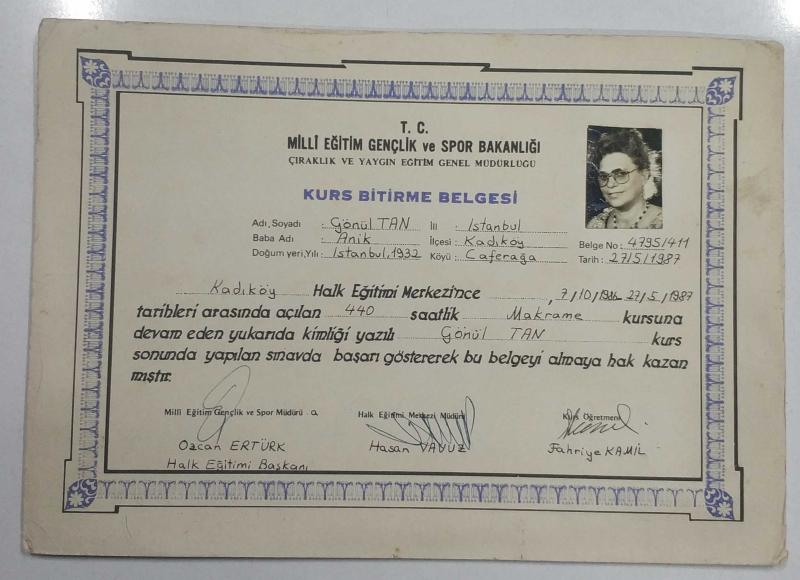 T. C.
MİLLÎ EĞİTİM GENÇLİK ve SPOR BAKANLIĞI
ÇIRAKLIK VE YAYGIN EĞİTİM GENEL MÜDÜRLÜĞÜ
KURS BİTİRME BELGESİ
Adı, Soyadı : Gönül TAN İli : İstanbul
Baba Adı : Anik İlçesi : Kadıköy Belge No : 4795/411
Doğum yeri, Yılı : İstanbul, 1932 Köyü : Caferağa Tarih : 27/5/1987
Kadıköy Halk Eğitimi Merkezi'nce , 7/10/ 27/5/1987
tarihleri arasında açılan 440 saatlik Makrame kursuna
devam eden yukarıda kimliği yazılı Gönül TAN kurs
sonunda yapılan sınavda başarı göstererek bu belgeyi almaya hak kazan
mıştır.
Millî Eğitim Gençlik ve Spor Müdürü a Halk Eğitimi Merkezi Müdürü Kurs Öğretmeni
Özcan ERTÜRK Hasan YAVUZ Fahriye KAMİL
Halk Eğitimi Başkanı